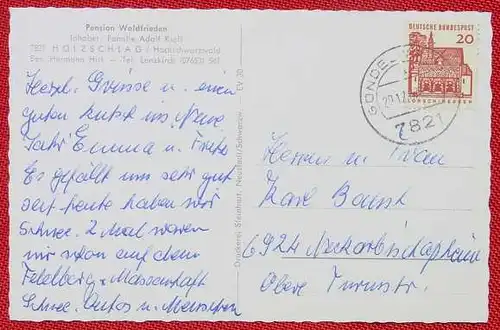 Pension Waldfrieden
Inhaber: Familie Adolf Kraft
7821 HOLZSCHLAG / Hochschwarzwald
Bes. Hermann Hirt - Tel. Lenzkirch (07653) 561
Herzl. Grüsse u. einen
guten Rutsch ins Neue
Jahr Emma u. Fritz
Es gefällt uns sehr gut
seit heute haben wir
Schnee. 2 Mal waren
wir schon auf dem
Feldberg. Massenhaft
Schnee, Autos u. Menschen
Druckerei Steinhart, Neustadt/Schwarzw. EV 20
DEUTSCHE BUNDESPOST
20
LORSCH/HESSEN
7821
Herrn u. Frau
Karl
6924 Neckarbischofsheim
Obere Turmstr.